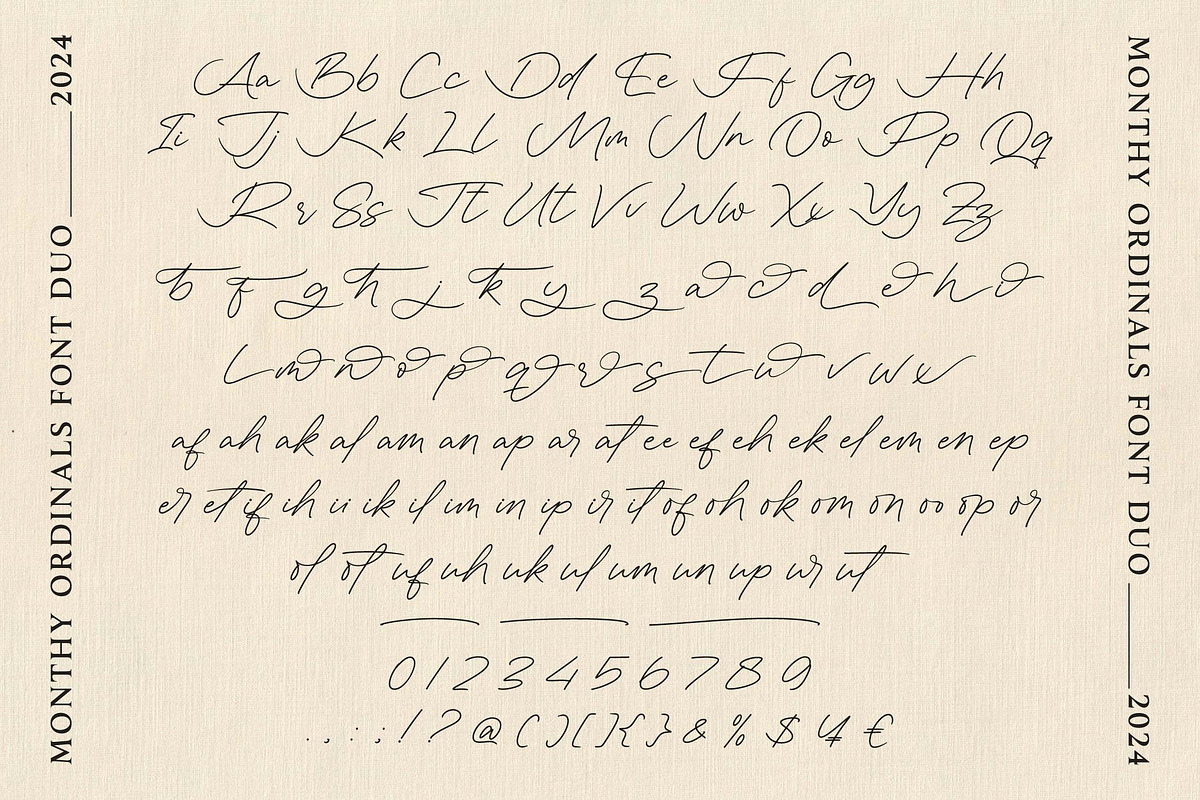 MONTHY ORDINALS FONT DUO 2024
Aa Bb Cc Dd Ee Ff Gg Hh
Ii Jj Kk Ll Mm Nn Oo Pp Qq
Rr Ss Tt Uu Vv Ww Xx Yy Zz
b f g h j k y z a c d e h i
l m n o p q r s t u v w x
af ah ak al am an ap ar at ee ef eh ek el em en ep
er et if ih ii ik il im in ip ir it of oh ok om on oo op or
ol ot uf uh uk ul um un up ur ut
0 1 2 3 4 5 6 7 8 9
. , : ; ! ? @ ( ) [ ] { } & % $ ¥ €
MONTHY ORDINALS FONT DUO 2024